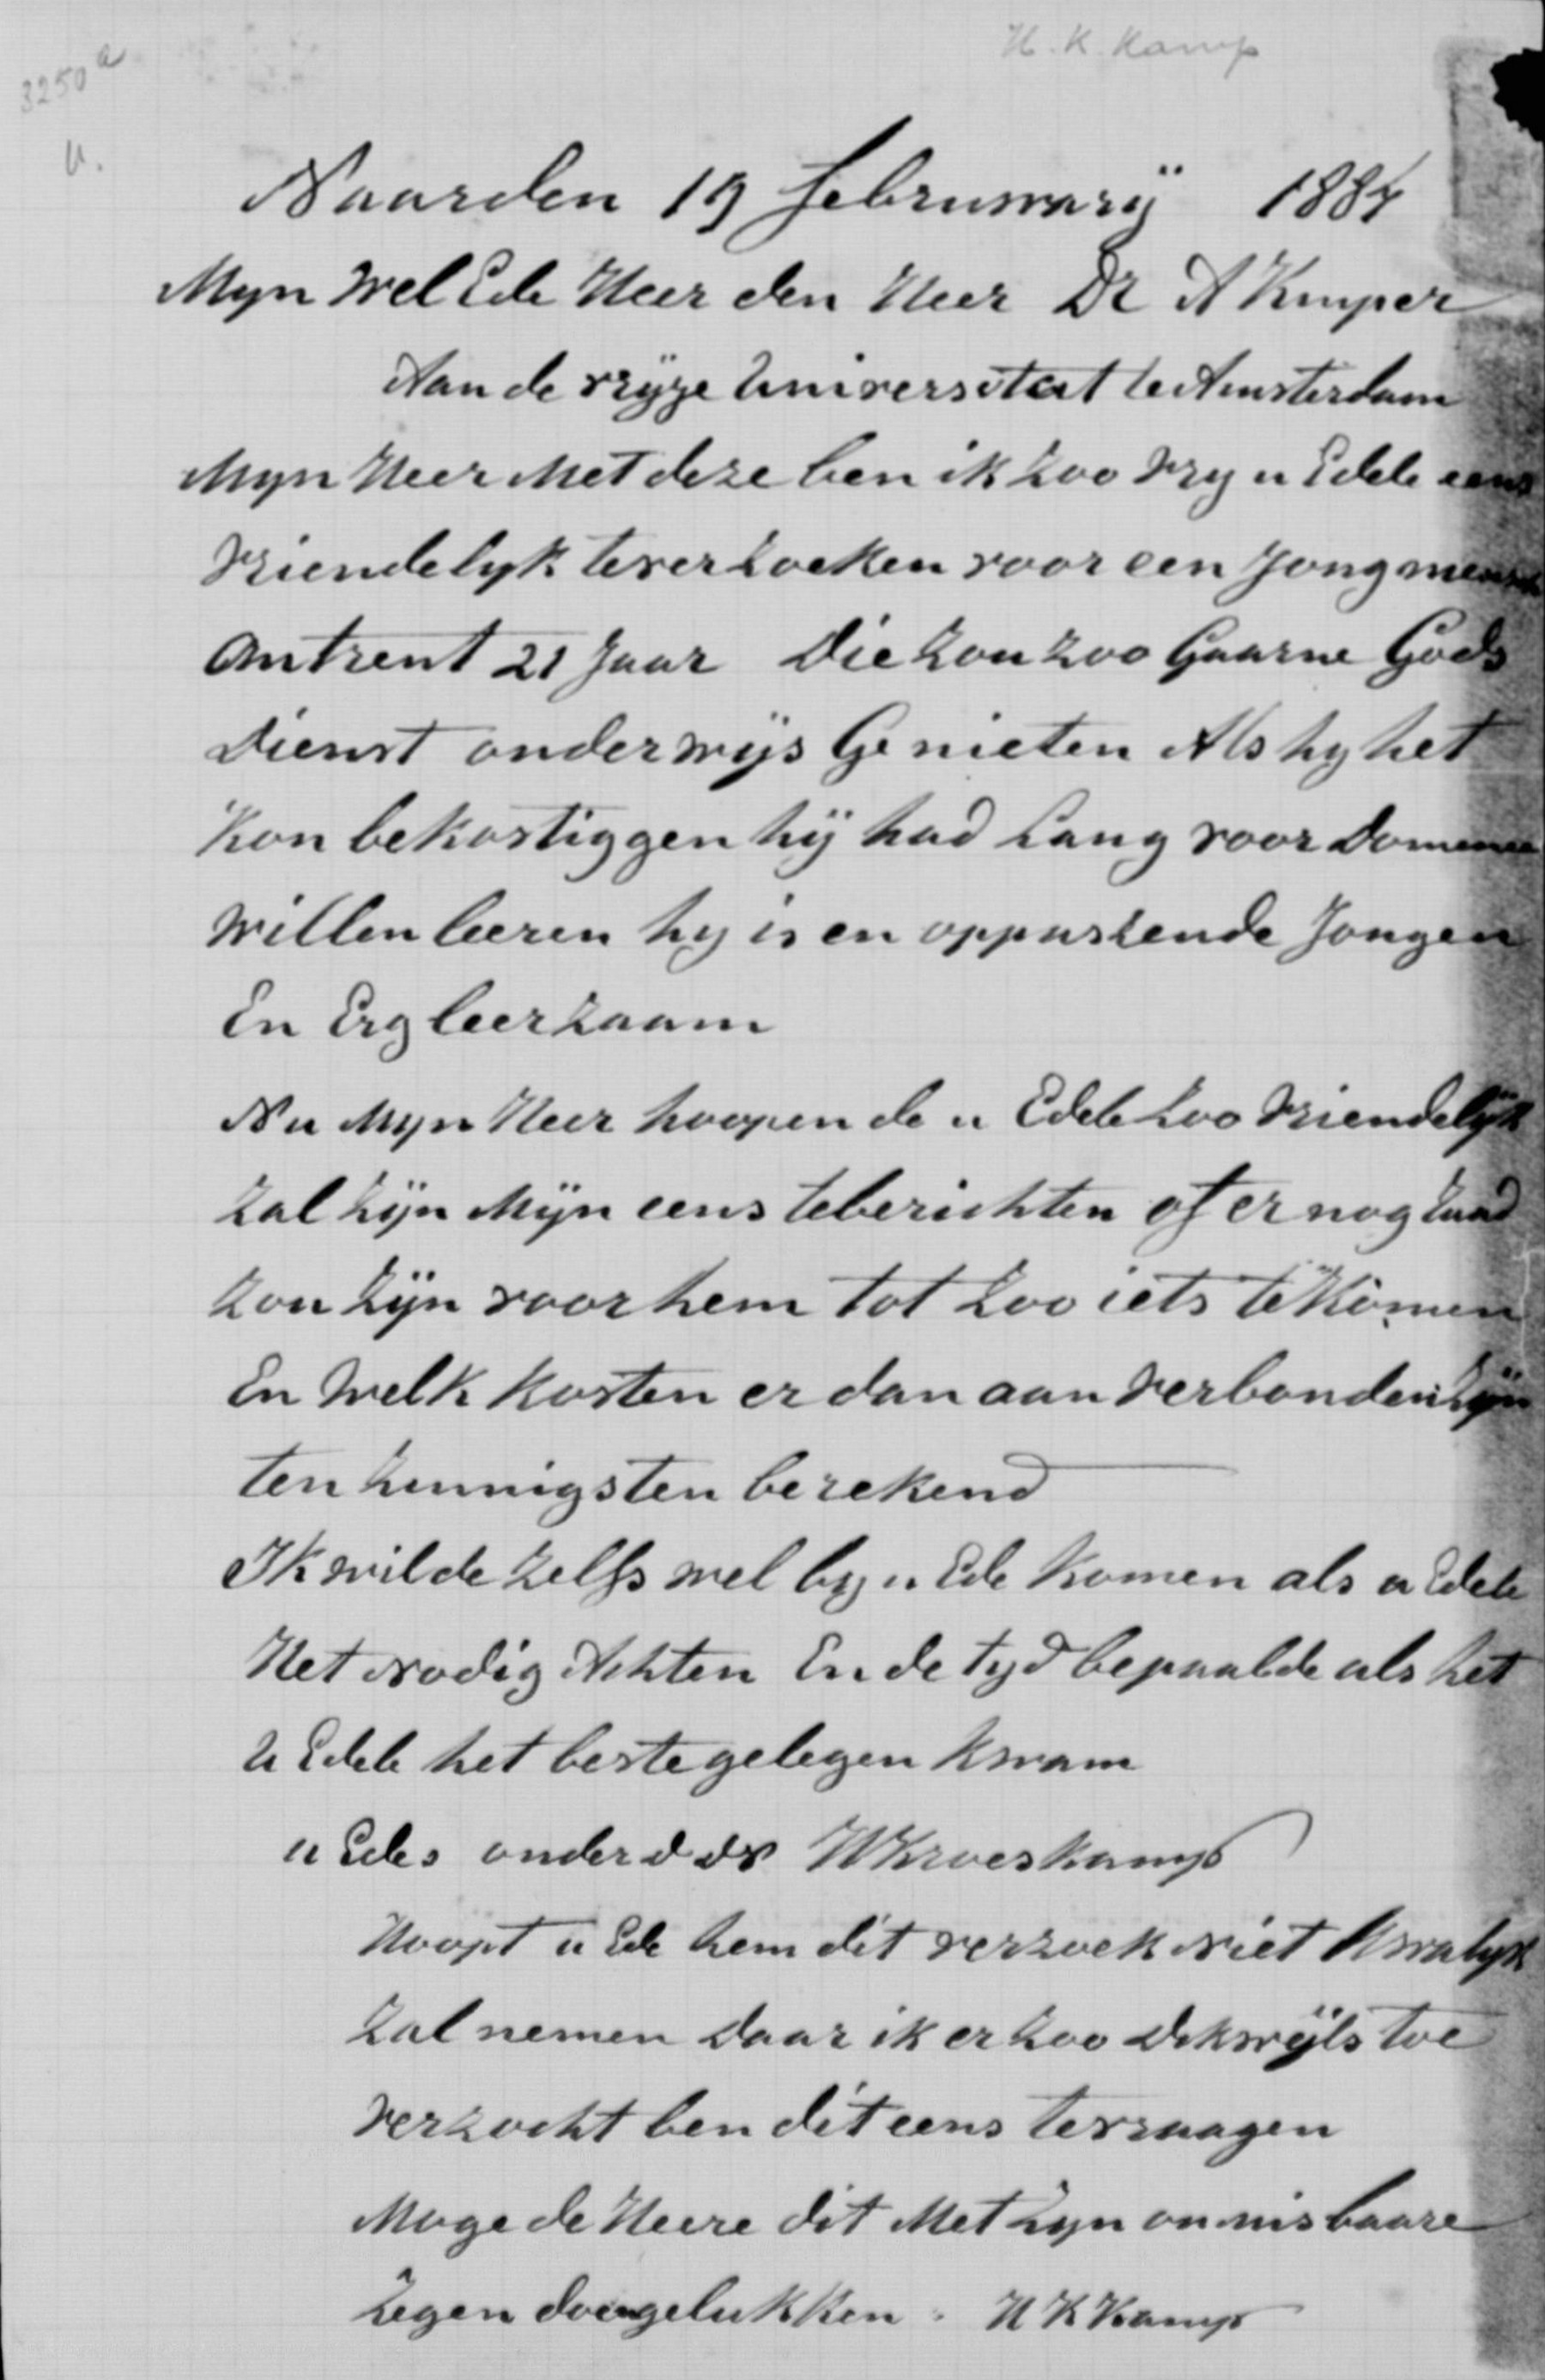 H. K. Kamp
3250 a
U.
Naarden 19 februwarij 1884
Myn Wel Ede Heer den Heer Dr A Kuyper
Aan de vrijze Universitat te Amsterdam
Myn Heer Met deze ben ik zoo vry u Edele eens
vriendelyk teverzoeken voor een Jongmensch
Omtrent 21 Jaar Die zou zoo Gaarne Gods
Dienst onderwijs Genieten Als hy het
Kon bekostiggen hij had Lang voor Domenee
Willen leeren hy is en oppassende Jongen
En Erg leerzaam
Nu Myn Heer hoopen de u Edele zoo vriendelijk
Zal zijn Mijn eens teberichten of er nog
zou zijn voor hem tot zoo iets te Komen
En Welk kosten er dan aan verbonden zijn
ten zunnigsten berekend
Ik wilde zelfs wel by u Ede Komen als u Edele
Het Nodig Achten En de tyd bepaalde als het
U Edele het beste gelegen kwam
u Edes onder d dr HKroeskamp
Hoopt u Ede hem dit verzoek Niet Kwalyk
Zal nemen Daar ik er zoo Dikwijls toe
verzocht ben dit eens tevraagen
Moge de Heere dit Met zyn onmisbaare
Zegen doen gelukken. H K Kamp